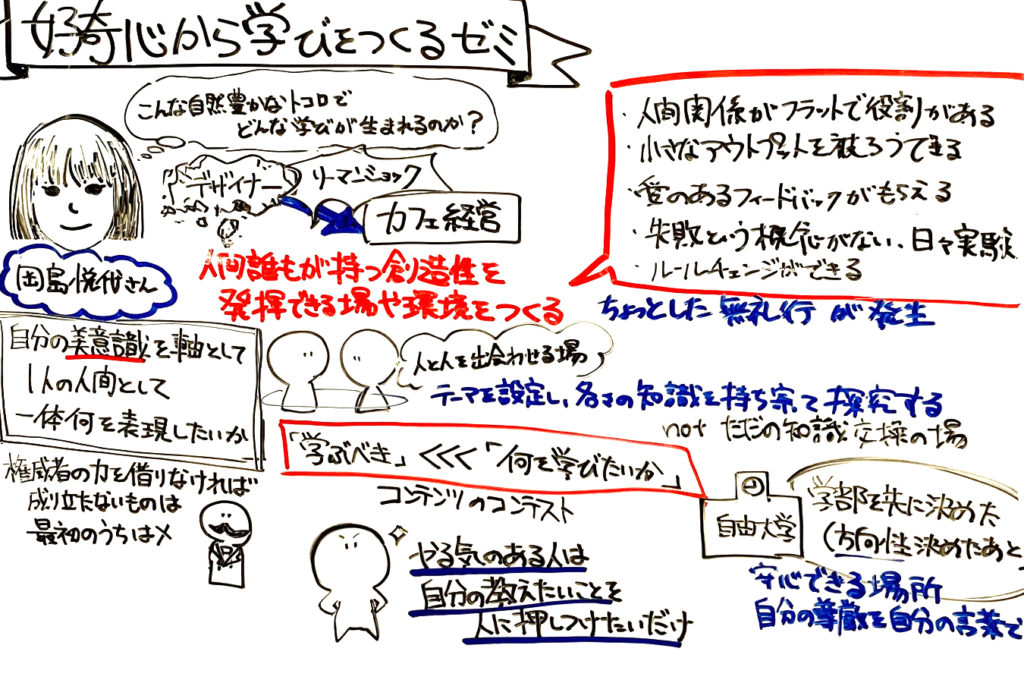 好奇心から学びをつくるゼミ
こんな自然豊かなトコロで
どんな学びが生まれるのか?
デザイナー
リーマンショック
カフェ経営
岡島悦代さん
人間誰もが持つ創造性を
発揮できる場や環境をつくる
・人間関係がフラットで役割がある
・小さなアウトプットを披ろうできる
・愛のあるフィードバックがもらえる
・失敗という概念がない、日々実験
・ルールチェンジができる
ちょっとした無礼行が発生
自分の美意識を軸として
1人の人間として
一体何を表現したいか
人と人を出会わせる場
テーマを設定し、各々の知識を持ち寄って探究する
not ただの知識交換の場
権威者の力を借りなければ
成り立たないものは
最初のうちは×
「学ぶべき」<<<「何を学びたいか」
コンテンツのコンテスト
やる気のある人は
自分の教えたいことを
人に押しつけたいだけ
自由大学
学部を先に決めた
(方向性決めたあと
安心できる場所
自分の尊厳を自分の言葉で